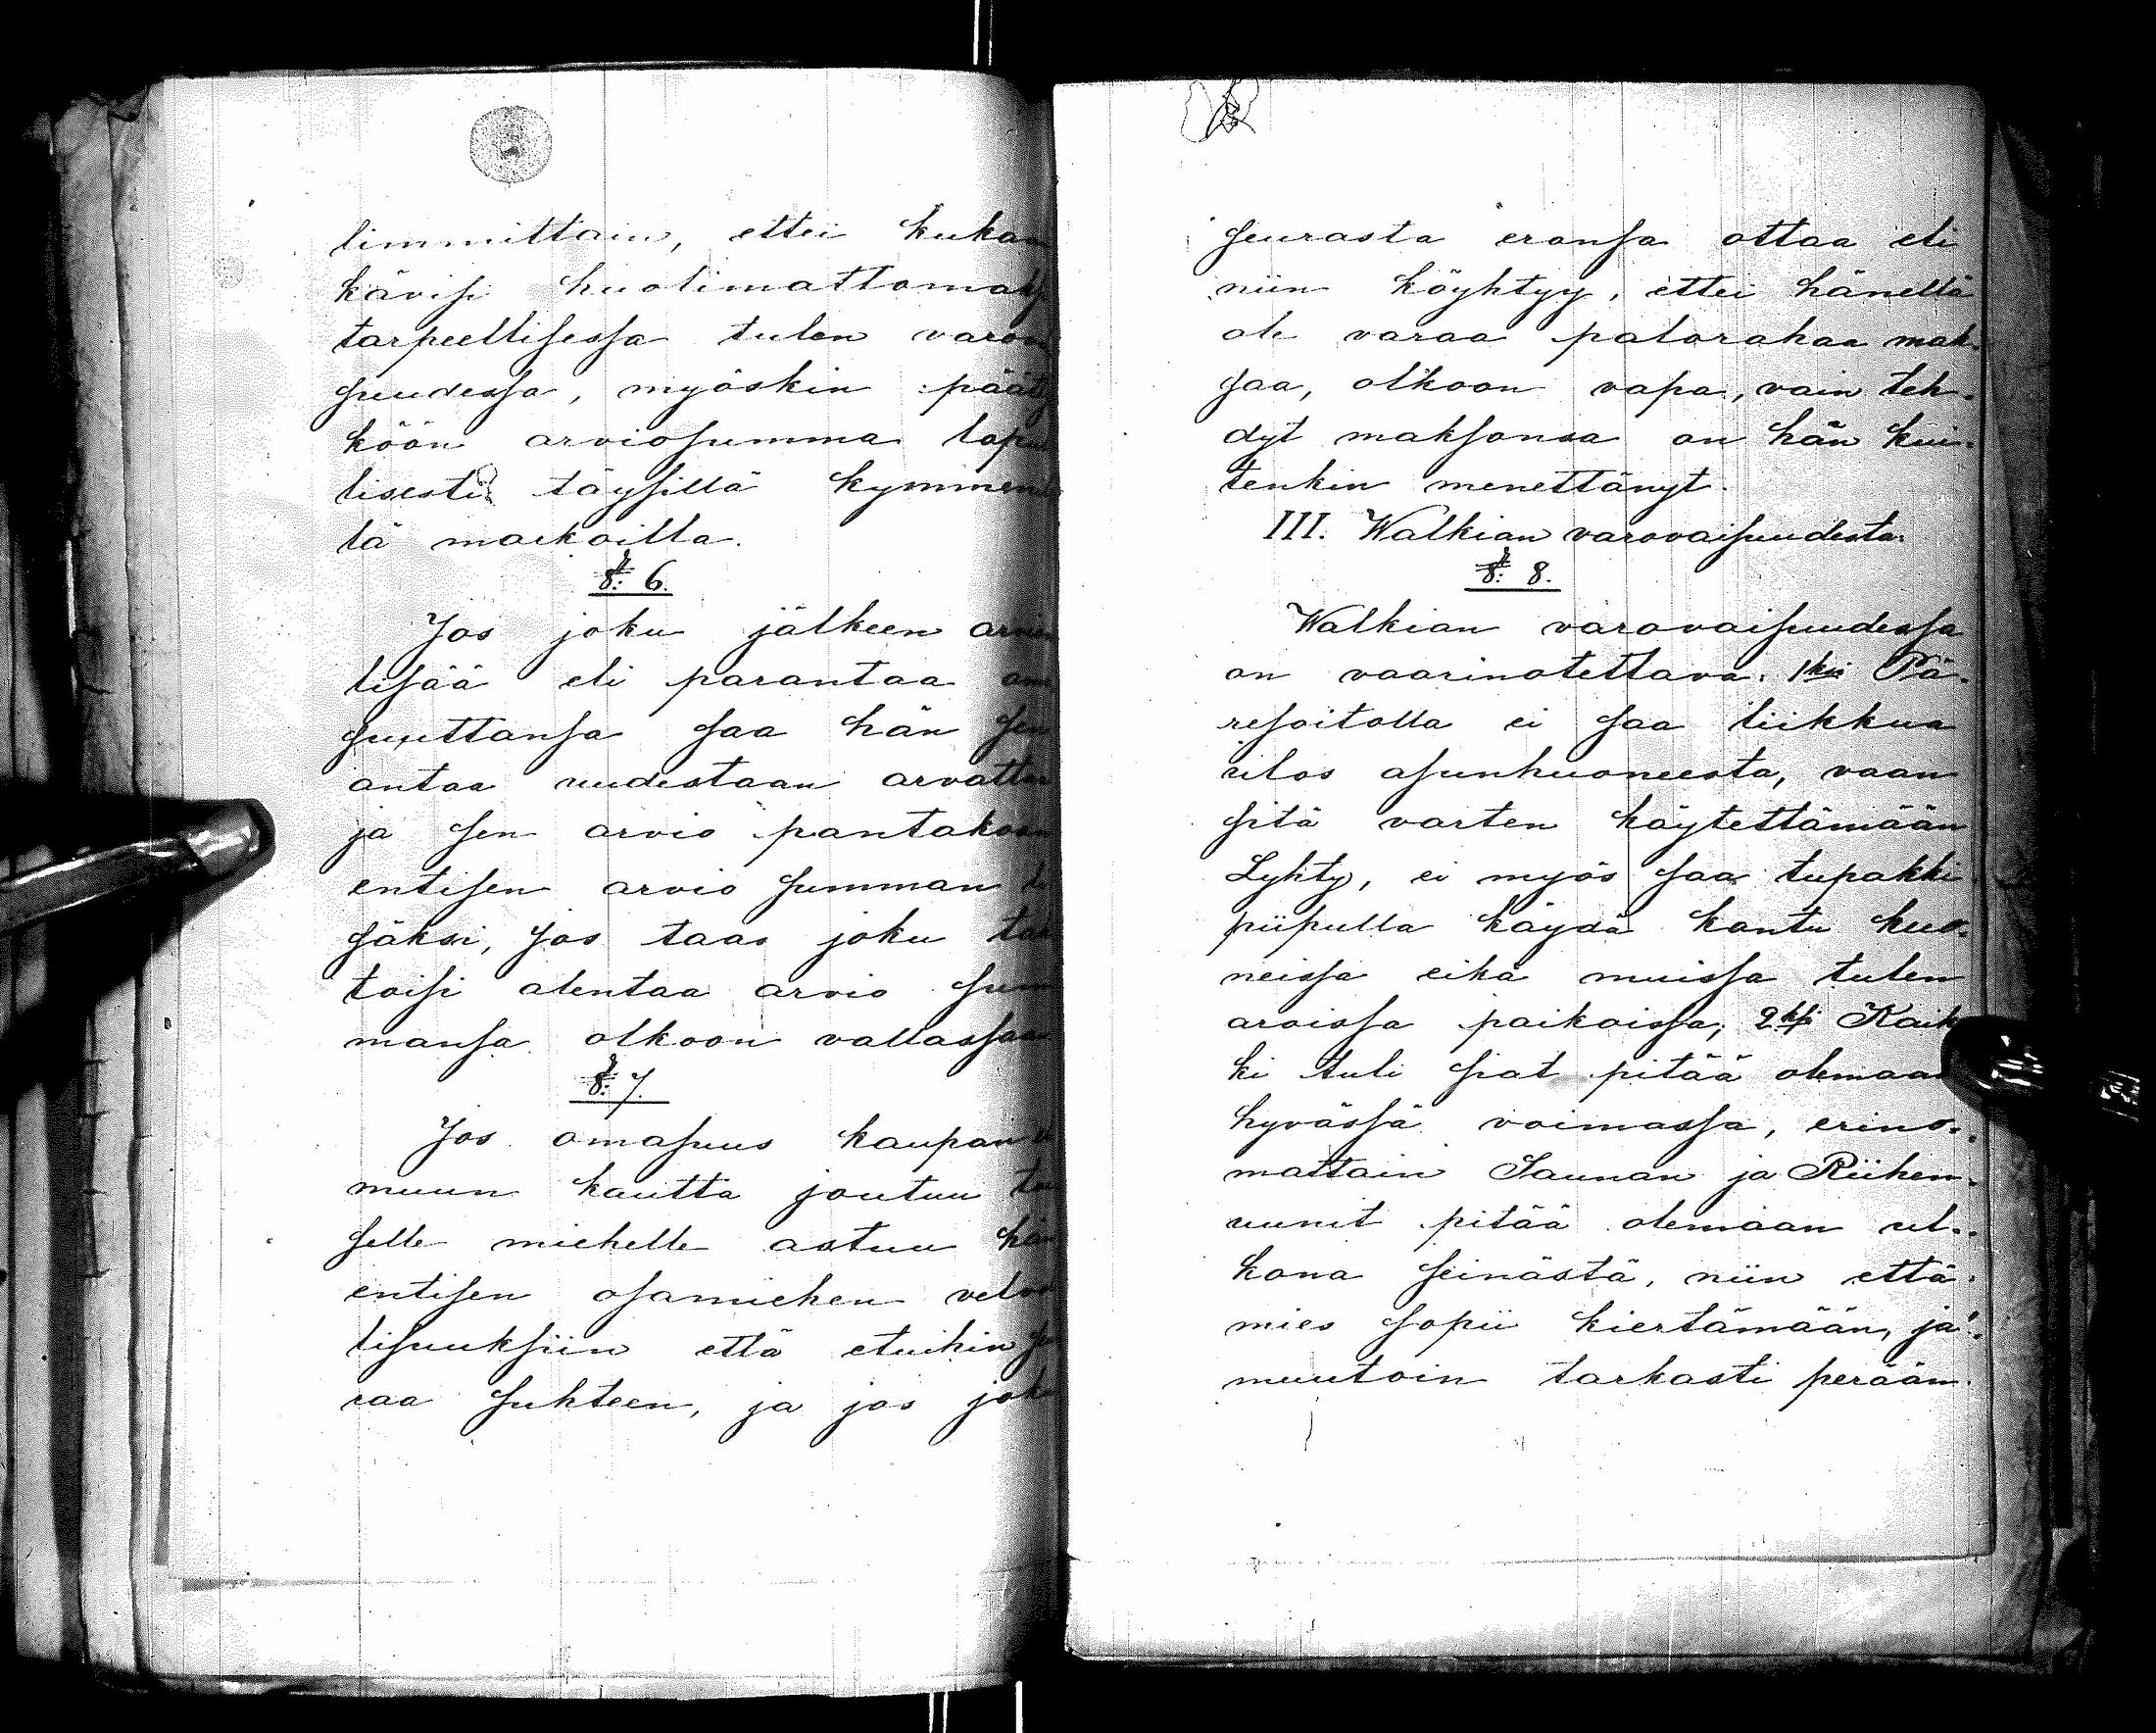 limmittain, ettei kukaan
kävisi huolimattomaksi
tarpeellisessa tulen varovai
suudessa, myöskin päätty
köön arviosumma lopul
lisesti täysillä kymmenil
lä markoilla.
§: 6.
Jos joku jälkeen arvion
lisää eli parantaa oma
suuttansa saa hän sen
antaa uudestaan arvattaa
ja sen arvio pantakoon
entisen arvio summan li
säksi, Jos taas joku tah
toisi alentaa arvio sum
mansa olkoon vallassaan
§: 7.
Jos omasuus kaupan
muun kautta joutuu toi
selle miehelle astuu hän
entisen osamiehen velvol
lisuuksiin että etuihin seu
raa suhteen, ja jos joku
seurasta eronsa ottaa eli
niin köyhtyy, ettei hänellä
ole varaa palorahaa mak-
saa, olkoon vapa, vain teh-
dyt maksonsa on hän kui-
tenkin menettänyt.
III. Walkian varovaisuudesta.
§: 8.
Walkian varovaisuudessa
on vaarinotettava. 1ksi Pä-
resoitolla ei saa liikkua
ulos asunhuoneesta, vaan
sitä varten käytettämään
Lyhty, ei myös saa tupakki
piipulla käydä kantu huo-
neissa eikä muissa tulen
aroissa paikoissa; 2ksi Kaik
ki tuli siat pitää olemaan
hyvässä voimassa, erino-
mattain Saunan ja Riihen-
uunit pitää olemaan ul-
kona seinästä, niin että
mies sopii kiertämään, ja
muutoin tarkasti perään-